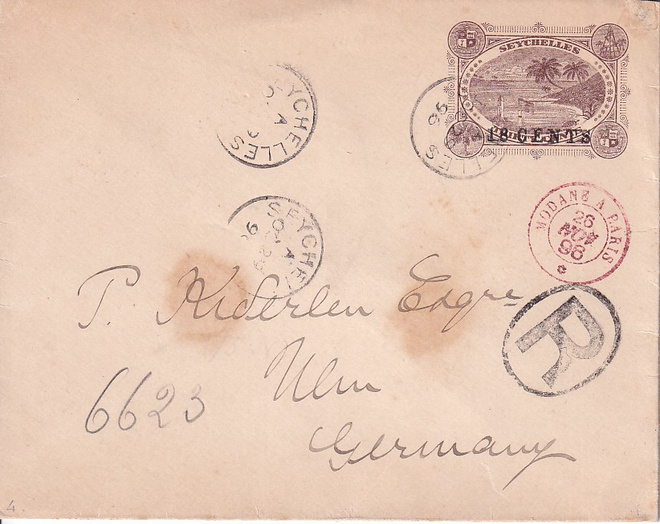 SEYCHELLES
18 CENTS
SEYCHELLES
A
SEYCHELLES
A
96
MODANE A PARIS
26
NOV
98
R
P. Kiderlen Esqre
Ulm
Germany
6623
4